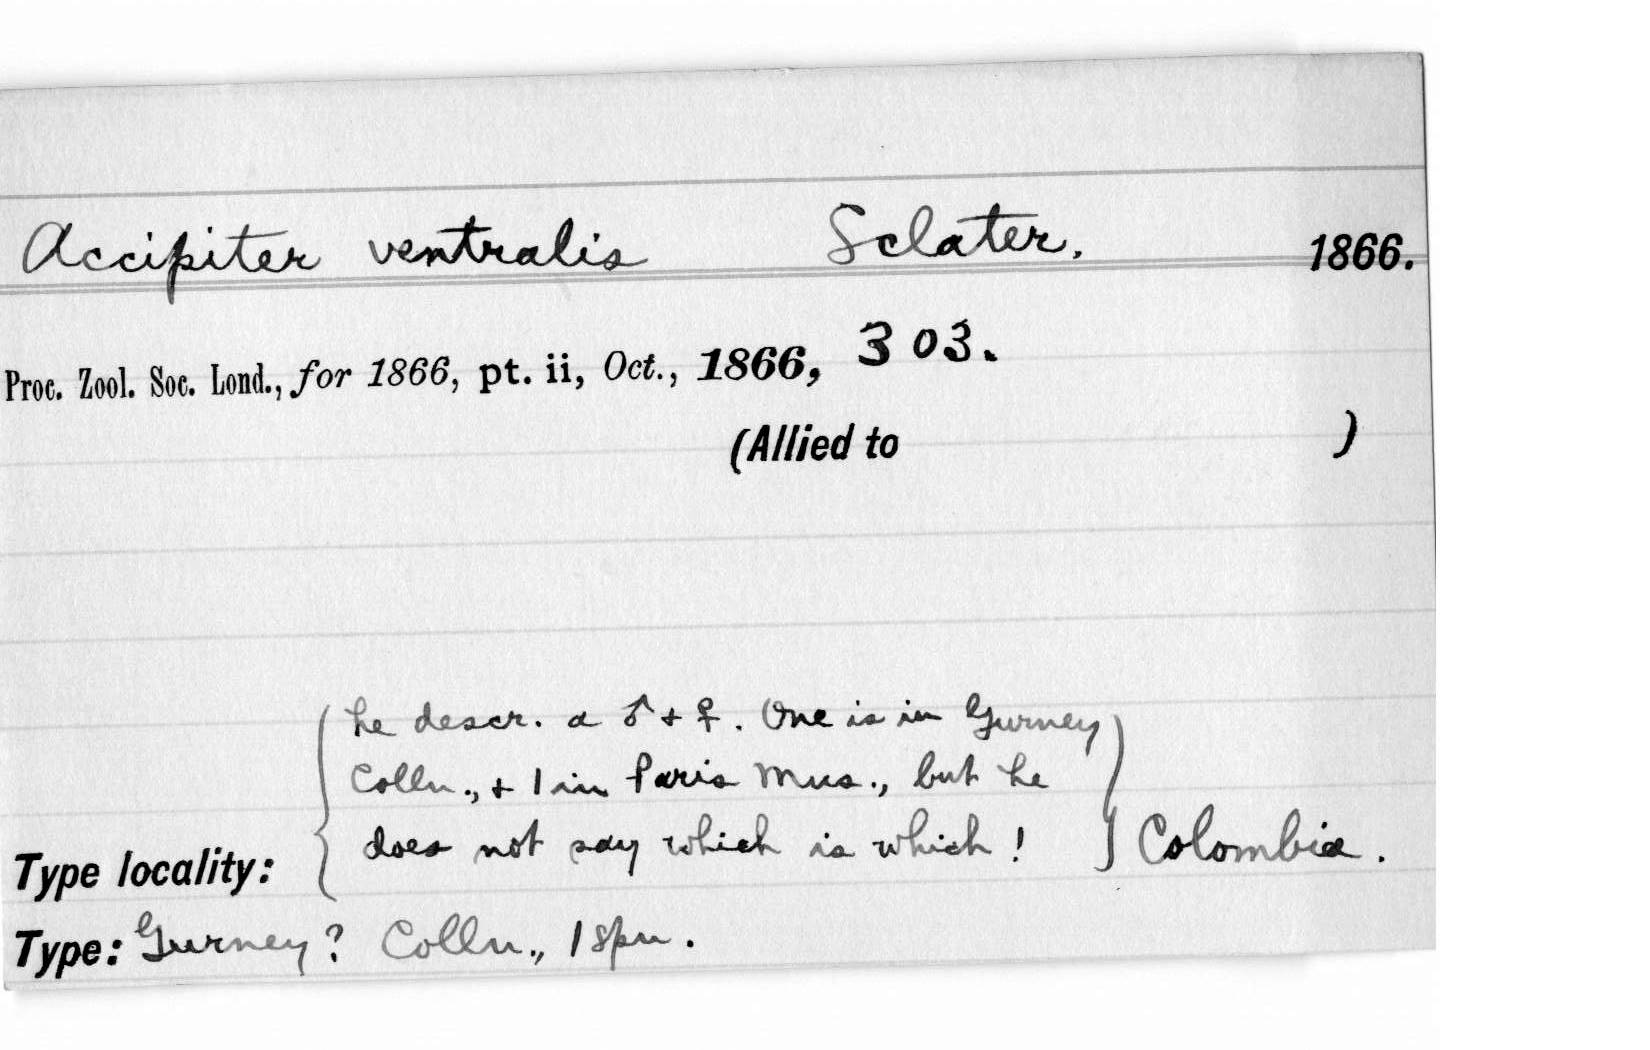 Accipiter ventralis Sclater. 1866.
Proc. Zool. Soc. Lond., for 1866, pt. ii, Oct., 1866, 303.
(Allied to )
he descr. a ♂ + ♀. One is in Gurney
Colln., + 1 in Paris Mus., but he
does not say which is which!
Type locality: Colombia.
Type: Gurney? Colln., 1 spn.